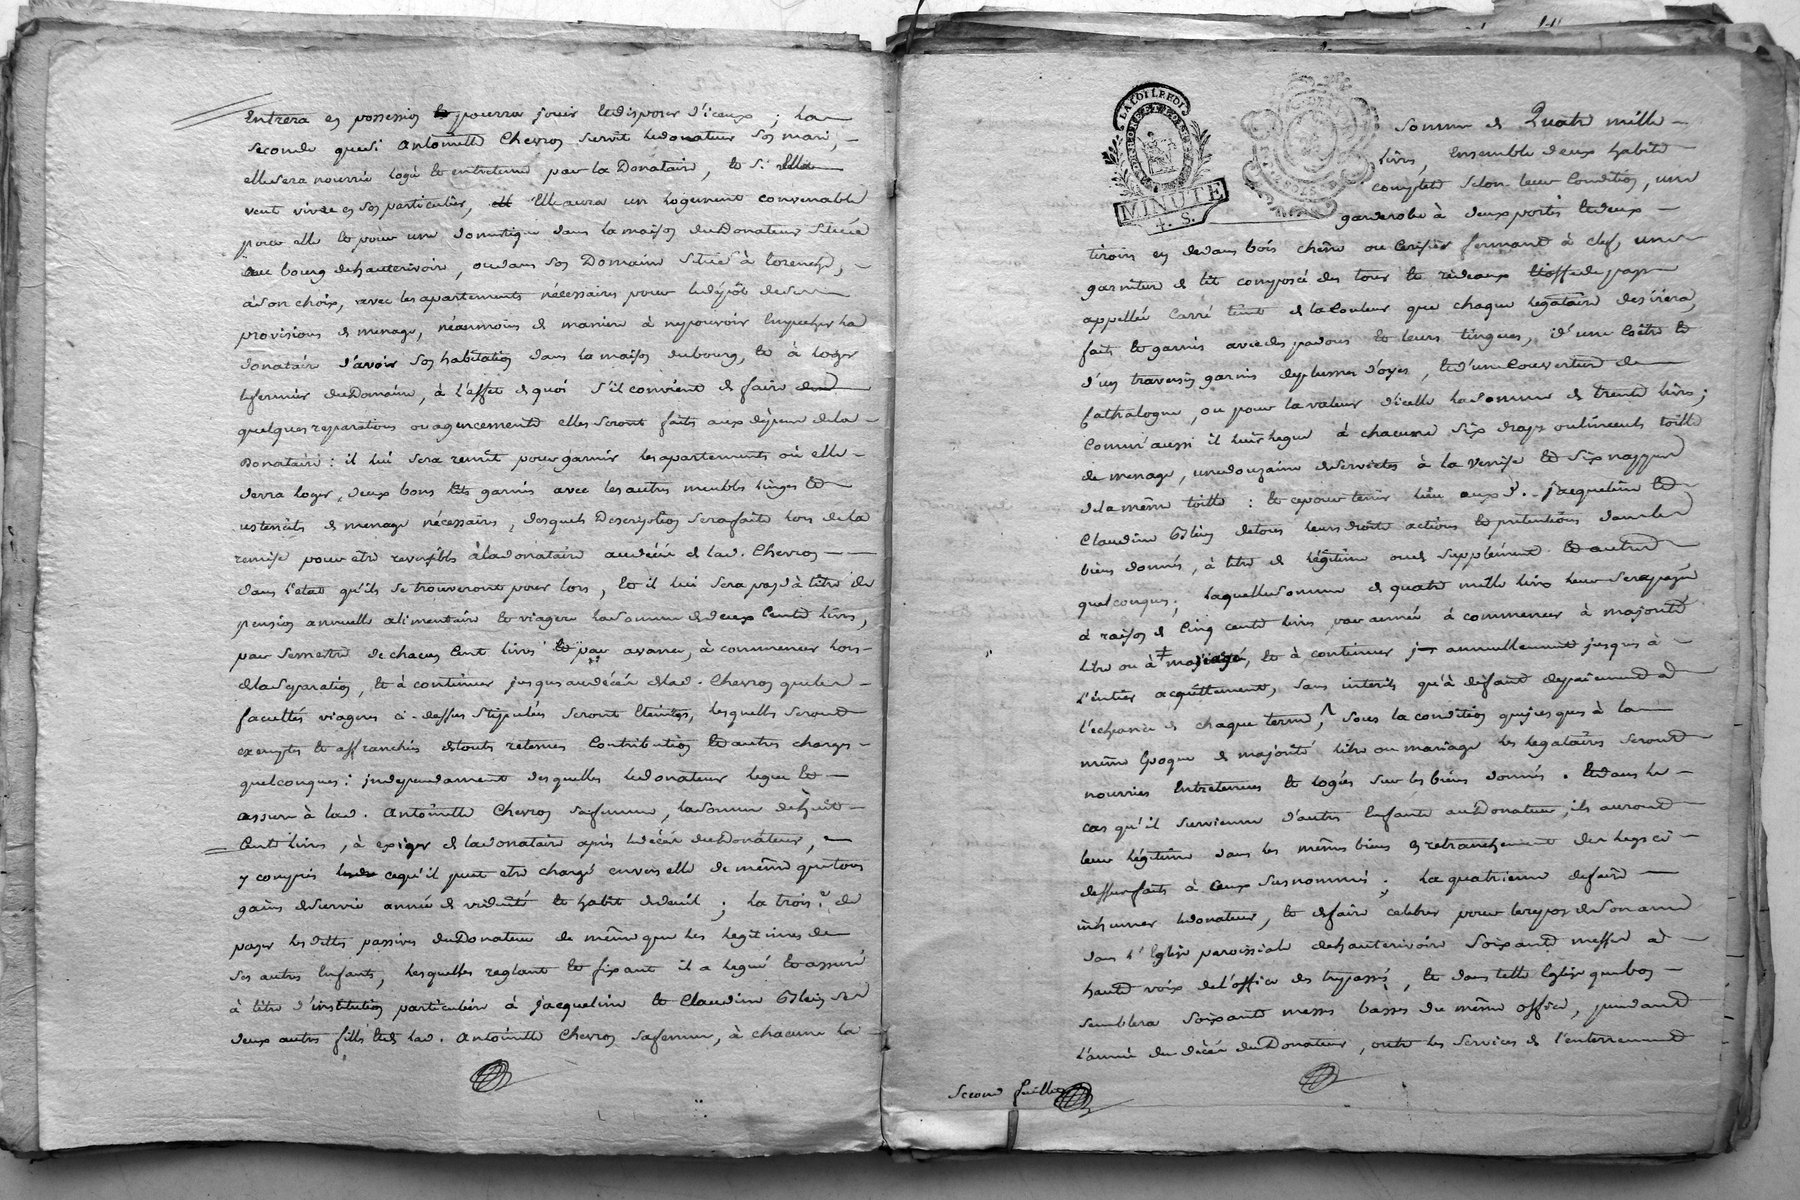 Entrera en possession et pourra jouir et disposer d'iceux ; La
seconde que si Antoinette Chevron survit ledonateur son mari,
elle sera nourrie logée et entretenue par la Donataire, et si Elle
veut vivre en son particulier, Elle aura un logement convenable
pour elle et pour une domestique dans la maison du Donateur Située
au bourg dehauterivoire, ou dans son Domaine Situé à
à son choix, avec les apartements nécessaires pour ledépôt deses
provisions de menage, néanmoins de maniere à ne pouvoir Empecher la
donataire d'avoir son habitation dans la maison du bourg, et à loger
le fermier du Domaine, à l'effet de quoi s'il convient de faire des
quelques reparations ou agencements elles seront faits aux dépens de la
Donataire : il lui sera remit pour garnir les apartements où elle
devra loger, deux bons lits garnis avec les autres meubles linges et
ustenciles de menage nécessaires, desquels Description sera faite lors de la
remise pour etre reversible à la donataire au décés de lad. Chevron
dans l'etat qu'ils se trouveront pour lors, et il lui sera payé à titre de
pension annuelle alimentaire et viagere la somme de deux Cents livres,
par Semestre de chacun Cent livres et par avance, à commencer lors
de la separation, et à continuer jusques au décés de lad. Chevron que les
facultés viageres ci-dessus stipulées seront Eteintes, lesquelles seront
exemptes et affranchies de toutes retenues Contribution et autres charges
quelconques : independament desquelles le donateur legue et
assure à lad. Antoinette Chevron sa femme, la somme de huit
Cents livres, à exiger de la donataire après le décés du Donateur,
y compris ce qu'il peut etre chargé envers elle de même que tous
gains de survie année de viduité et habit de deuil ; La trois.e de
payer les dettes passives du Donateur de même que les legitimes de
ses autres Enfants, lesquelles reglant et fixant il a legué et assuré
à titre d'institution particuliere à jacqueline et Claudine ses
deux autres filles et de lad. Antoinette Chevron sa femme, à chacune la
LA LOI LE ROI
MINUTE
4. S.
Somme de Quatre mille
livres, Ensemble deux habits
complets selon leur Condition, une
garderobe à deux portes et deux
tiroirs en dedans bois chêne ou Cerisier fermant à clef, une
garniture de lit composée des tour et rideaux Etoffe de pays
appellée Carré teint de la Couleur que chaque legataire desirera,
faits et garnis avec des padous et leurs tingues, d'une Coëtre et
d'un traversin garnis de plumes d'oyes, et d'une Couverture de
Cathalogne, ou pour la valeur d'icelle la somme de trente livres ;
Comm'aussi il leur legue à chacune six draps ou linceuls toille
de menage, une douzaine de serviettes à la Venise et six nappes
de la même toille : et ce pour tenir lieu aux d. jacqueline et
Claudine de tous leurs droits actions et pretentions dans les
biens donnés, à titre de légitime ou de supplément et autres
quelconques ; Laquelle somme de quatre mille livres leur sera payée
à raison de Cinq cents livres par année à commencer à majorité
libre ou à mariage, et à continuer annuellement jusques à
l'entier acquittement, sans interets qu'à défaut de paiement à
l'echeance de chaque terme, sous la condition que jusques à la
même Epoque de majorité libre ou mariage les legataires seront
nourries Entretenues et logées sur les biens donnés. Et dans le
cas qu'il survienne d'autres Enfants au Donateur, ils auront
leur légitime dans les mêmes biens en retranchement des legs ci
dessus faits à Ceux susnommés ; La quatrieme de faire
inhumer ledonateur, et de faire celebrer pour le repos de son ame
dans l'Eglise paroissiale de hauterivoire Soixante messes à
haute voix de l'office des trepassés, et dans telle Eglise que bon
semblera soixante messes basses du même office, pendant
l'année du décés du Donateur, outre les services de l'enterrement
Second feuillet